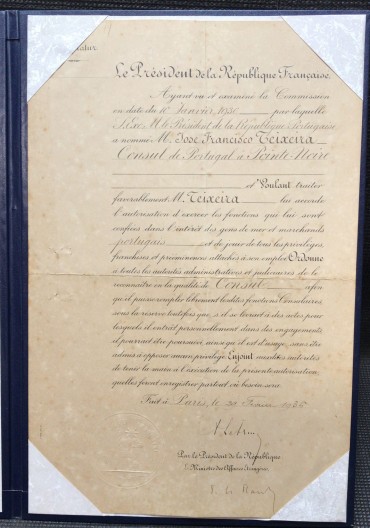 Le Président de la République Française
Ayant vu et examiné la Commission
en date du Janvier par laquelle
S. Exc. M. le Président de la République Portugaise
a nommé M. José Francisco Teixeira
Consul de Portugal à Pointe-Noire
et Voulant traiter
favorablement M. Teixeira lui accorde
l'autorisation d'exercer les fonctions qui lui sont
confiées dans l'intérêt des gens de mer et marchands
portugais et de jouir de tous les privilèges,
franchises et prééminences attachés à son emploi Ordonne
à toutes les autorités administratives et judiciaires de le
reconnaître en la qualité de Consul afin
qu'il puisse remplir librement lesdites fonctions Consulaires
sous la réserve toutefois que, s'il se livrait à des actes pour
lesquels il entrât personnellement dans des engagements
il pourrait être poursuivi ainsi qu'il est d'usage, sans être
admis à opposer aucun privilège Enjoint auxdites autorités
de tenir la main à l'exécution de la présente autorisation
qu'elles feront enregistrer partout où besoin sera
Fait à Paris, le
Par le Président de la République
Ministre des Affaires Etrangères